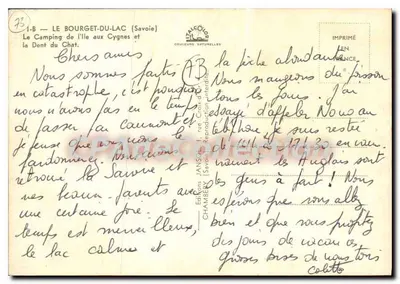 73
1-8 - LE BOURGET-DU-LAC (Savoie)
Le Camping de l'Ile aux Cygnes et
la Dent du Chat.
IMPRIMÉ
EN
FRANCE
73
COULEURS NATURELLES
Chers amis
Nous sommes partis
en catastrophe, c'est pourquoi
nous n'avons pas eu le temps
de passer au
je pense que vous nous le
pardonnerez. Nous avons
retrouvé la Savoie et
nos beaux-parents avec
une certaine joie. Le
temps est merveilleux,
le lac calme et
la pêche abondante.
Nous mangeons du poisson
tous les jours. J'ai
essayé d'appeler
téléphone, je suis restée
vraiment les Anglais sont
des gens à part ! Nous
espérons que vous allez
bien et que vous profitez
des jours de vacances
grosses bises de nous tous
Colette
Editions JANSOL
CHAMBERY (Savoie) - Reproduction interdite